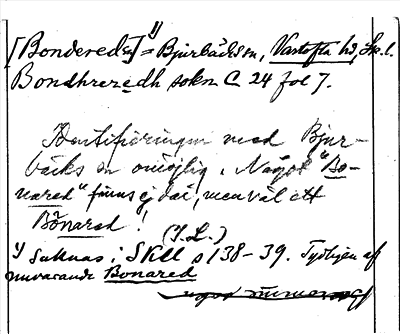 [Bondered] 1) = Bjurbäcks sn, Vartofta hd, Sk. l.
Bondhreredh sokn C 24 fol 7.
Identifieringen med Bjur-
bäcks sn omöjlig. Något "Bo-
nared" finns ej där, men väl ett
Bönared!
(I.L.)
1) Saknas i SKLL s 138-39. Tydligen af
nuvarande Bonared